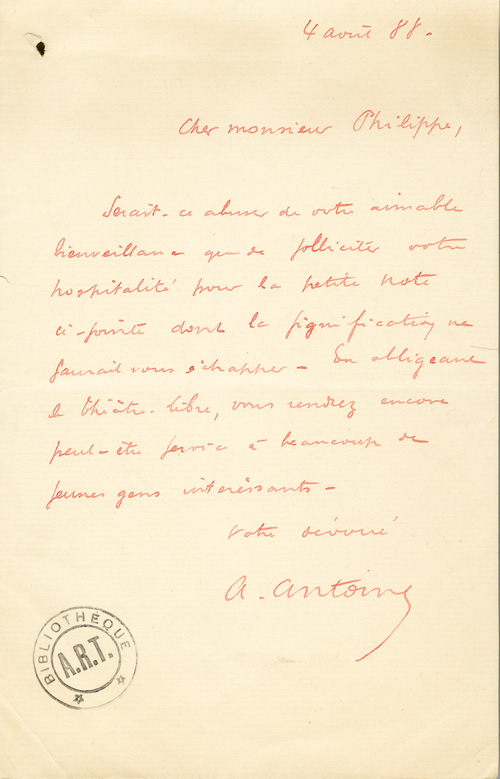 4 août 88 -
Cher monsieur Philippe,
Serait-ce abuser de votre aimable
bienveillance que de solliciter votre
hospitalité pour la petite note
ci-jointe dont la signification ne
saurait vous échapper - En obligeant
le théâtre-libre, vous rendrez encore
peut-être service à beaucoup de
jeunes gens intéressants -
Votre dévoué
A. Antoine
BIBLIOTHÈQUE
A.R.T.